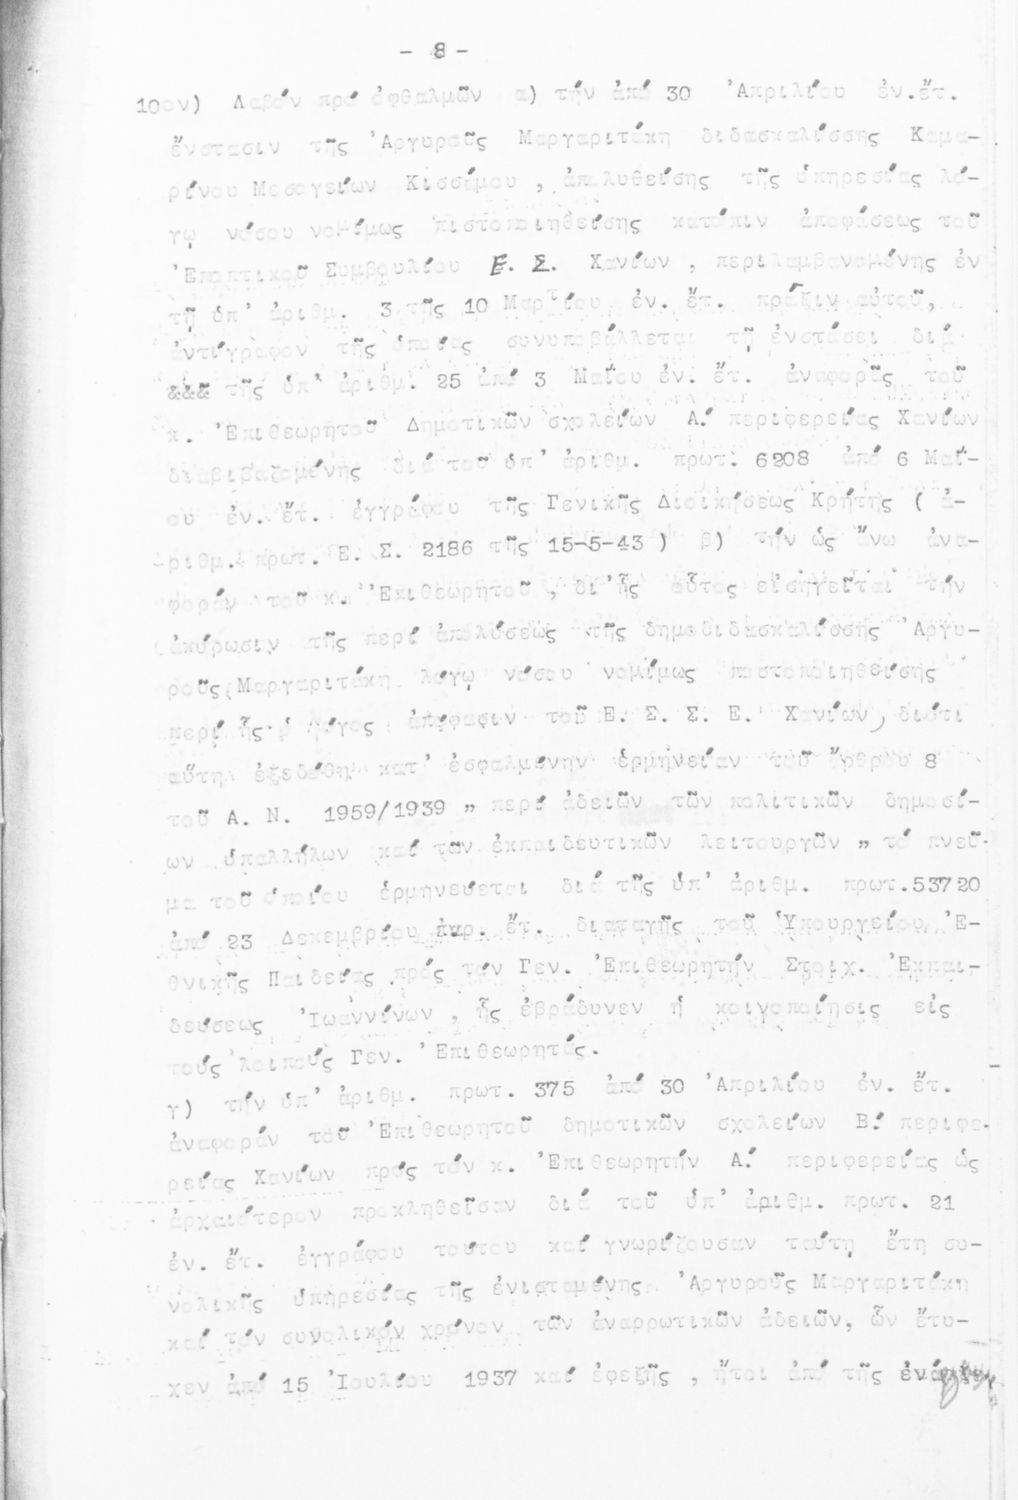 - 8 -
10ον) Λαβόν πρό ὀφθαλμῶν α) τήν ἀπό 30 'Απριλίου ἐν.ἔτ.
ἔνστασιν τῆς 'Αργυροῦς Μαργαριτάκη διδασκαλίσσης Καμα-
ρίνου Μεσογείων Κισσάμου , ἀπολυθείσης τῆς ὑπηρεσίας λό-
γῳ νόσου νομίμως πιστοποιηθείσης κατόπιν ἀποφάσεως τοῦ
'Εποπτικοῦ Συμβουλίου Ε. Σ. Χανίων , περιλαμβανομένης ἐν
τῇ ὑπ' ἀριθμ. 3 τῆς 10 Μαρτίου ἐν. ἔτ. πρᾶξιν αὐτοῦ,
ἀντίγραφον τῆς ὁποίας συνυποβάλλεται τῇ ἐνστάσει διά
τῆς ὑπ' ἀριθμ. 25 ἀπό 3 Μαΐου ἐν. ἔτ. ἀναφορᾶς τοῦ
κ. 'Επιθεωρητοῦ Δημοτικῶν σχολείων Α! περιφερείας Χανίων
διαβιβαζομένης διά τοῦ ὑπ' ἀριθμ. πρωτ. 6208 ἀπό 6 Μαΐ-
ου ἐν. ἔτ. ἐγγράφου τῆς Γενικῆς Διοικήσεως Κρήτης ( ἀ-
ριθμ. πρωτ. Ε. Σ. 2186 τῆς 15-5-43 ) β) τήν ὡς ἄνω ἀνα-
φοράν τοῦ κ. 'Επιθεωρητοῦ , δι'ἧς οὗτος εἰσηγεῖται τήν
ἀκύρωσιν τῆς περί ἀπολύσεως τῆς δημοδιδασκαλίσσης 'Αργυ-
ροῦς Μαργαριτάκη λόγῳ νόσου νομίμως πιστοποιηθείσης
περί ἧς ὁ λόγος ἀπόφασιν τοῦ Ε. Σ. Σ. Ε. Χανίων, διότι
αὕτη ἐξεδόθη κατ' ἐσφαλμένην ἑρμηνείαν τοῦ ἄρθρου 8
τοῦ Α. Ν. 1959/1939 " περί ἀδειῶν τῶν πολιτικῶν δημοσί-
ων ὑπαλλήλων καί τῶν ἐκπαιδευτικῶν λειτουργῶν " τό πνεῦ-
μα τοῦ ὁποίου ἑρμηνεύεται διά τῆς ὑπ' ἀριθμ. πρωτ.53720
ἀπό 23 Δεκεμβρίου παρ. ἔτ. διαταγῆς τοῦ 'Υπουργείου 'Ε-
θνικῆς Παιδείας πρός τόν Γεν. 'Επιθεωρητήν Στοιχ. 'Εκπαι-
δεύσεως 'Ιωαννίνων , ἧς ἐβράδυνεν ἡ κοινοποίησις εἰς
τούς λοιπούς Γεν. 'Επιθεωρητάς.
γ) τήν ὑπ' ἀριθμ. πρωτ. 375 ἀπό 30 'Απριλίου ἐν. ἔτ.
ἀναφοράν τοῦ 'Επιθεωρητοῦ δημοτικῶν σχολείων Β! περιφε-
ρείας Χανίων πρός τόν κ. 'Επιθεωρητήν Α! περιφερείας ὡς
ἀρχαιότερον προκληθεῖσαν διά τοῦ ὑπ' ἀριθμ. πρωτ. 21
ἐν. ἔτ. ἐγγράφου τούτου καί γνωρίζουσαν ταύτῃ ἔτη συ-
νολικῆς ὑπηρεσίας τῆς ἐνισταμένης 'Αργυροῦς Μαργαριτάκη
καί τόν συνολικόν χρόνον τῶν ἀναρρωτικῶν ἀδειῶν, ὧν ἔτυ-
χεν ἀπό 15 'Ιουλίου 1937 καί ἐφεξῆς , ἤτοι ἀπό τῆς